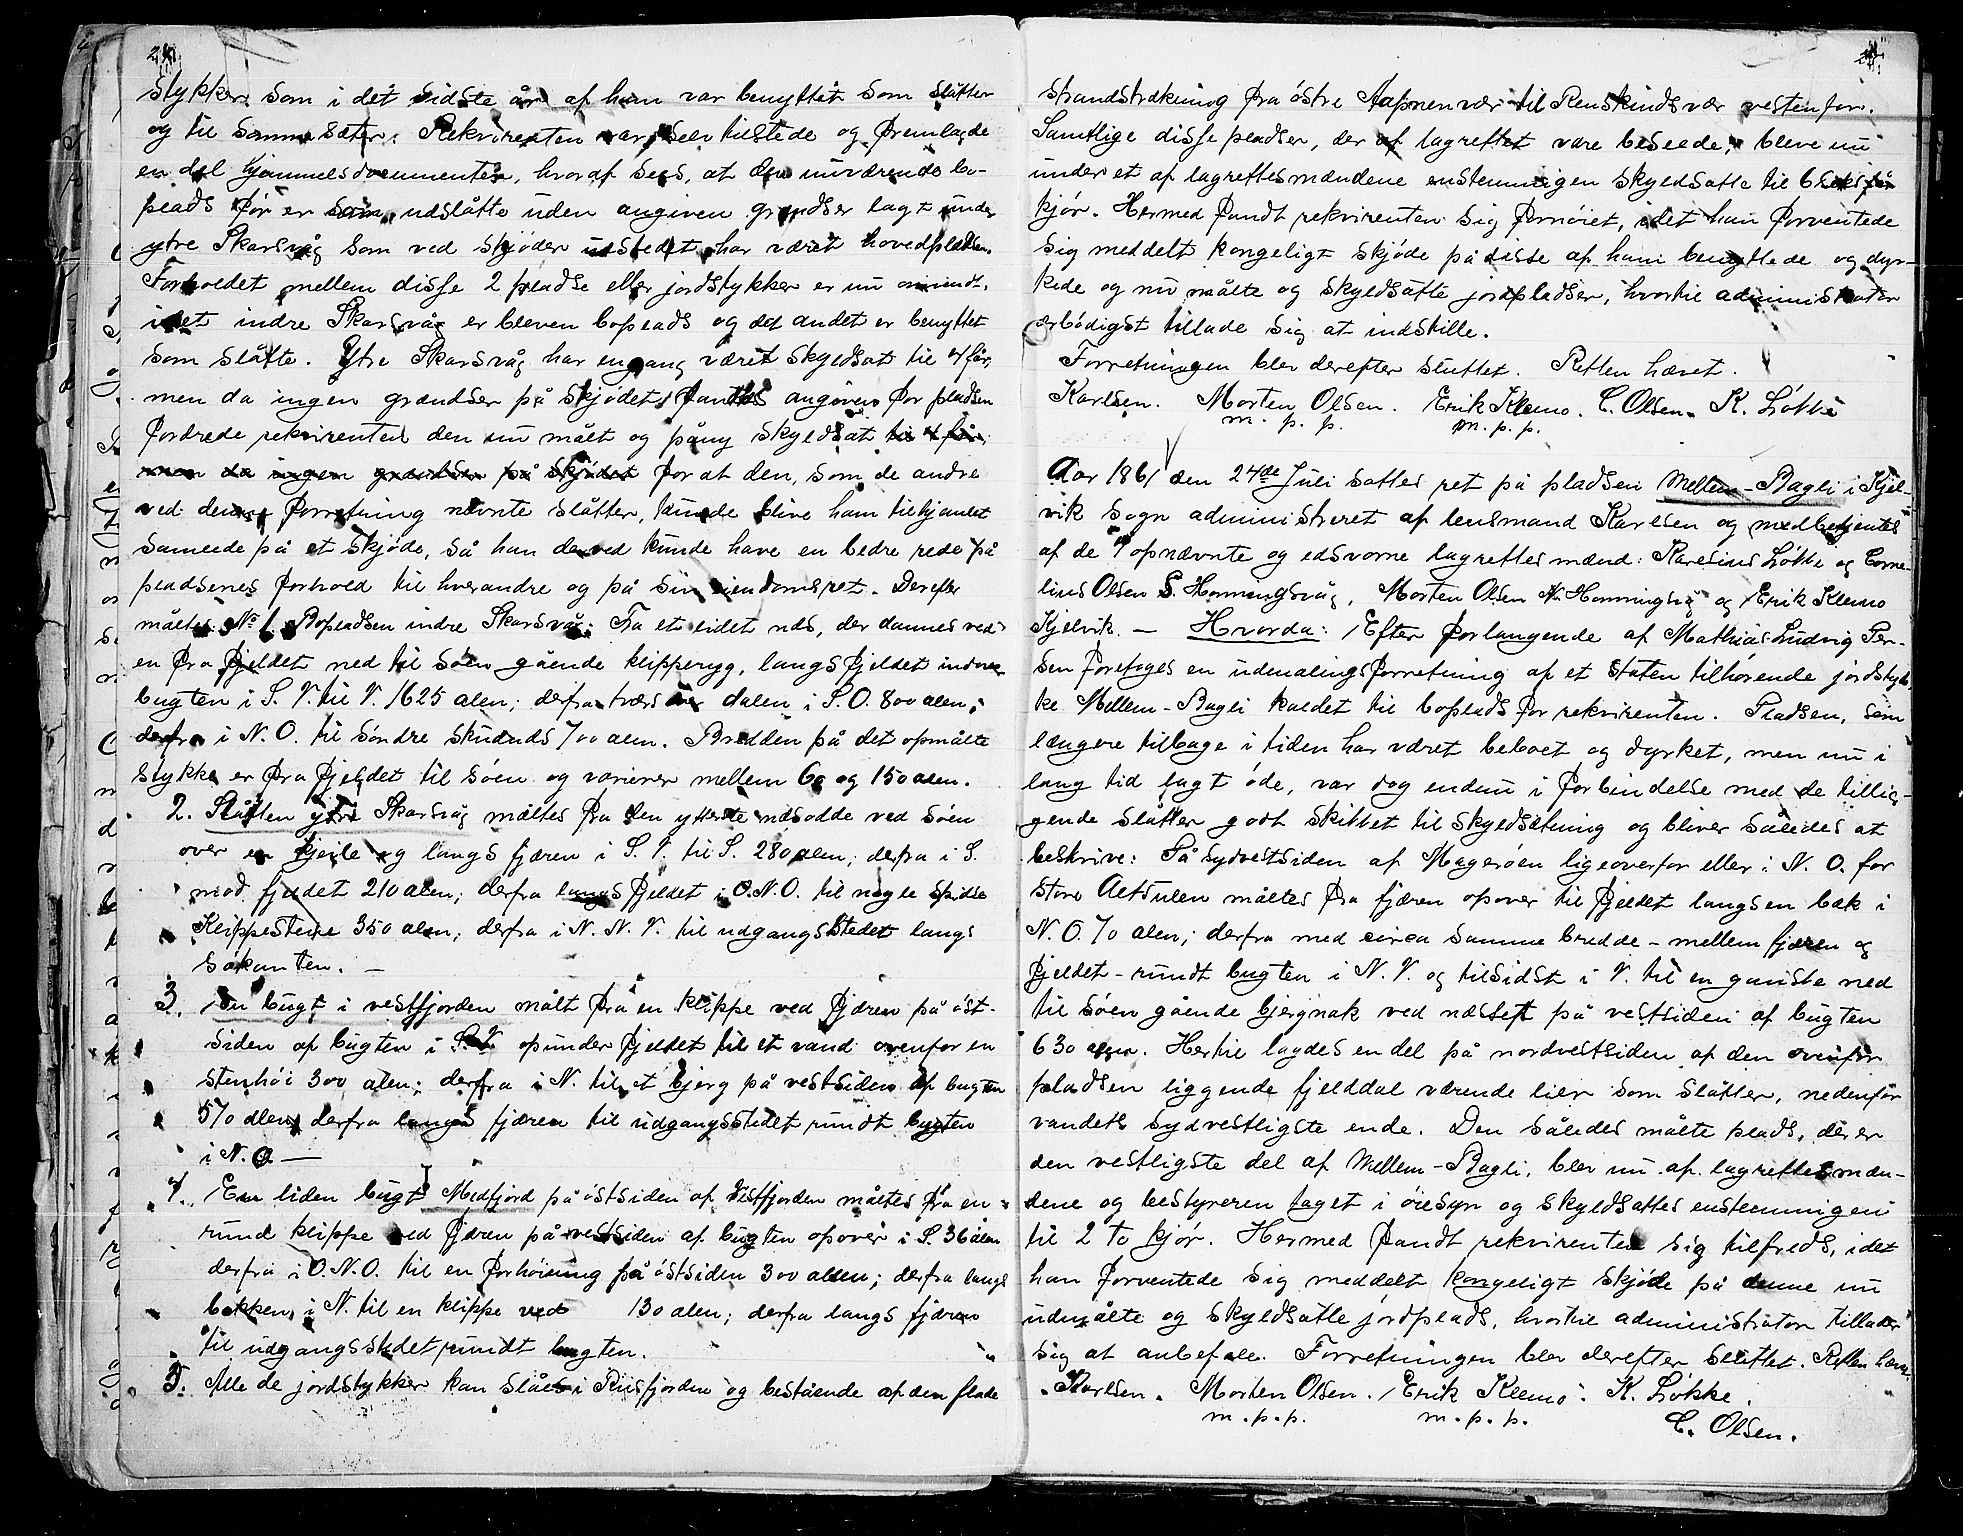 stykker som i det sidste år af ham var benyttet som slåtter
og til somme sæter. Rekvirenten var selv tilstede og fremlagde
en del hjemmelsdocumenter, hvoraf sees, at den nuværende bo-
plads før er som udslåtte uden angiven grændser lagt under
ytre Skarsvåg som ved skjøder udstedt har været hovedpladsen.
Forholdet mellem disse 2 pladse eller jordstykker er nu omvendt,
idet indre Skarsvåg er bleven boplads og det andet er benyttet
som slåtte. Ytre Skarsvåg har engang været skyldsat til 4 får,
men da ingen grændser på skjødet fandtes angiven for pladsen
fordrede rekvirenten den nu målt og påny skyldsat til 4 får,
men da ingen grændser på skjødet for at den, som de andre
ved denne forretning nævnte slåtter, kunde blive ham tilhjemlet
samlede på et skjøde, så han derved kunde have en bedre rede på
pladsenes forhold til hverandre og på sin eiendomsret. Derefter
måltes: No 1. Bopladsen indre Skarsvåg: Fra et lidet nds, der dannes ved
en fra fjeldet ned til søen gående klipperyg, langs fjeldet indover
bugten i S. V. til V. 1625 alen; derfra tværs over dalen i S. O. 800 alen;
derfra i N. O. til søndre skudnds 700 alen. Bredden på det opmålte
stykke er fra fjeldet til søen og varierer mellem 60 og 150 alen.
2. Slåtten ytre Skarsvåg måltes fra den ytterste ndsodde ved søen
over en kjeile og langs fjæren i S. V. til S. 280 alen; derfra i S.
mod fjeldet 210 alen; derfra langs fjeldet i O.N.O. til nogle spidse
Klippestene 350 alen; derfra i N. N. V. til udgangsstedet langs
søkanten. —
3. En bugt i vestfjorden målt fra en klippe ved fjæren på øst-
siden af bugten i S.V. opunder fjeldet til et vand ovenfor en
stenhøi 300 alen; derfra i N. til et bjerg på vestsiden af bugten
570 alen; derfra langs fjæren til udgangsstedet rundt bugten
i N. O. —
4. En liden bugt Medfjord på østsiden af Vestfjorden måltes fra en
rund klippe ved fjæren på vestsiden af bugten opover i S. 36 alen
derfra i O. N. O. til en forhøining på østsiden 300 alen; derfra langs
bekken i N. til en klippe ved 130 alen; derfra langs fjæren
til udgangsstedet rundt bugten.
5. Alle de jordstykker kan slåes i Risfjorden og bestående af den flade
strandstrækning fra østre Aafnenvær til Renskindsvær vestenfor.
Samtlige disse pladser, der af lagrettet vare beseede, bleve nu
under et af lagrettesmændene enstemmigen skyldsatte til 6 seks får
kjør. Hermed fandt rekvirenten sig fornøiet, idet han forventede
sig meddelt kongeligt skjøde på disse af ham benyttede og dyr-
kede og nu målte og skyldsatte jordpladser, hvortil administrator
ærbødigst tillade sig at indstille.
Forretningen blev derefter sluttet. Retten hævet.
Karlsen. Morten Olsen. Erik Klemo. C. Olsen. K. Løkke
m. p. p. m. p. p.
Aar 1861 den 24de Juli sattes ret på pladsen Mellem-Bagli i Kjel-
vik sogn administreret af lensmand Karlsen og medbetjentes
af de 4 opnævnte og edsvorne lagrettesmænd: Karelius Løkke og Corne-
lius Olsen S. Honningsvåg, Morten Olsen N. Honningsvåg og Erik Klemo
Kjelvik. — Hvorda: Efter forlangende af Mathias Ludvig Per-
sen foretoges en udmalingsforretning af et staten tilhørende jordstyk-
ke Mellem-Bagli kaldet til boplads for rekvirenten. Pladsen, som
længere tilbage i tiden har været beboet og dyrket, men nu i
lang tid lagt øde, var dog endnu i forbindelse med de tillig-
gende slåtter godt skikket til skyldsætning og bliver således at
beskrive: På sydvestsiden af Magerøen ligeoverfor eller i N. O. for
store Altsulen måltes fra fjæren opover til fjeldet langs en bæk i
N. O. 70 alen; derfra med circa samme bredde – mellem fjæren og
fjeldet – rundt bugten i N. V. og tilsidst i V. til en ganske ned
til søen gående bjergnak ved næstet på vestsiden af bugten
630 alen. Hertil lagdes en del på nordvestsiden af den ovenfor
pladsen liggende fjelddal værende lier som slåtter, nedenfor
vandets sydvestligste ende. Den således målte plads, der er
den vestligste del af Mellem-Bagli, blev nu af lagrettesmæn-
dene og bestyreren taget i øiesyn og skyldsattes enstemmigen
til 2 to kjør. Hermed fandt rekvirenten sig tilfreds, idet
han forventede sig meddelt kongeligt skjøde på denne nu
udmålte og skyldsatte jordplads, hvortil administrator tillader
sig at anbefale. Forretningen blev derefter sluttet. Retten hævet.
Karlsen. Morten Olsen. Erik Klemo. K. Løkke.
m. p. p. m. p. p.
C. Olsen.